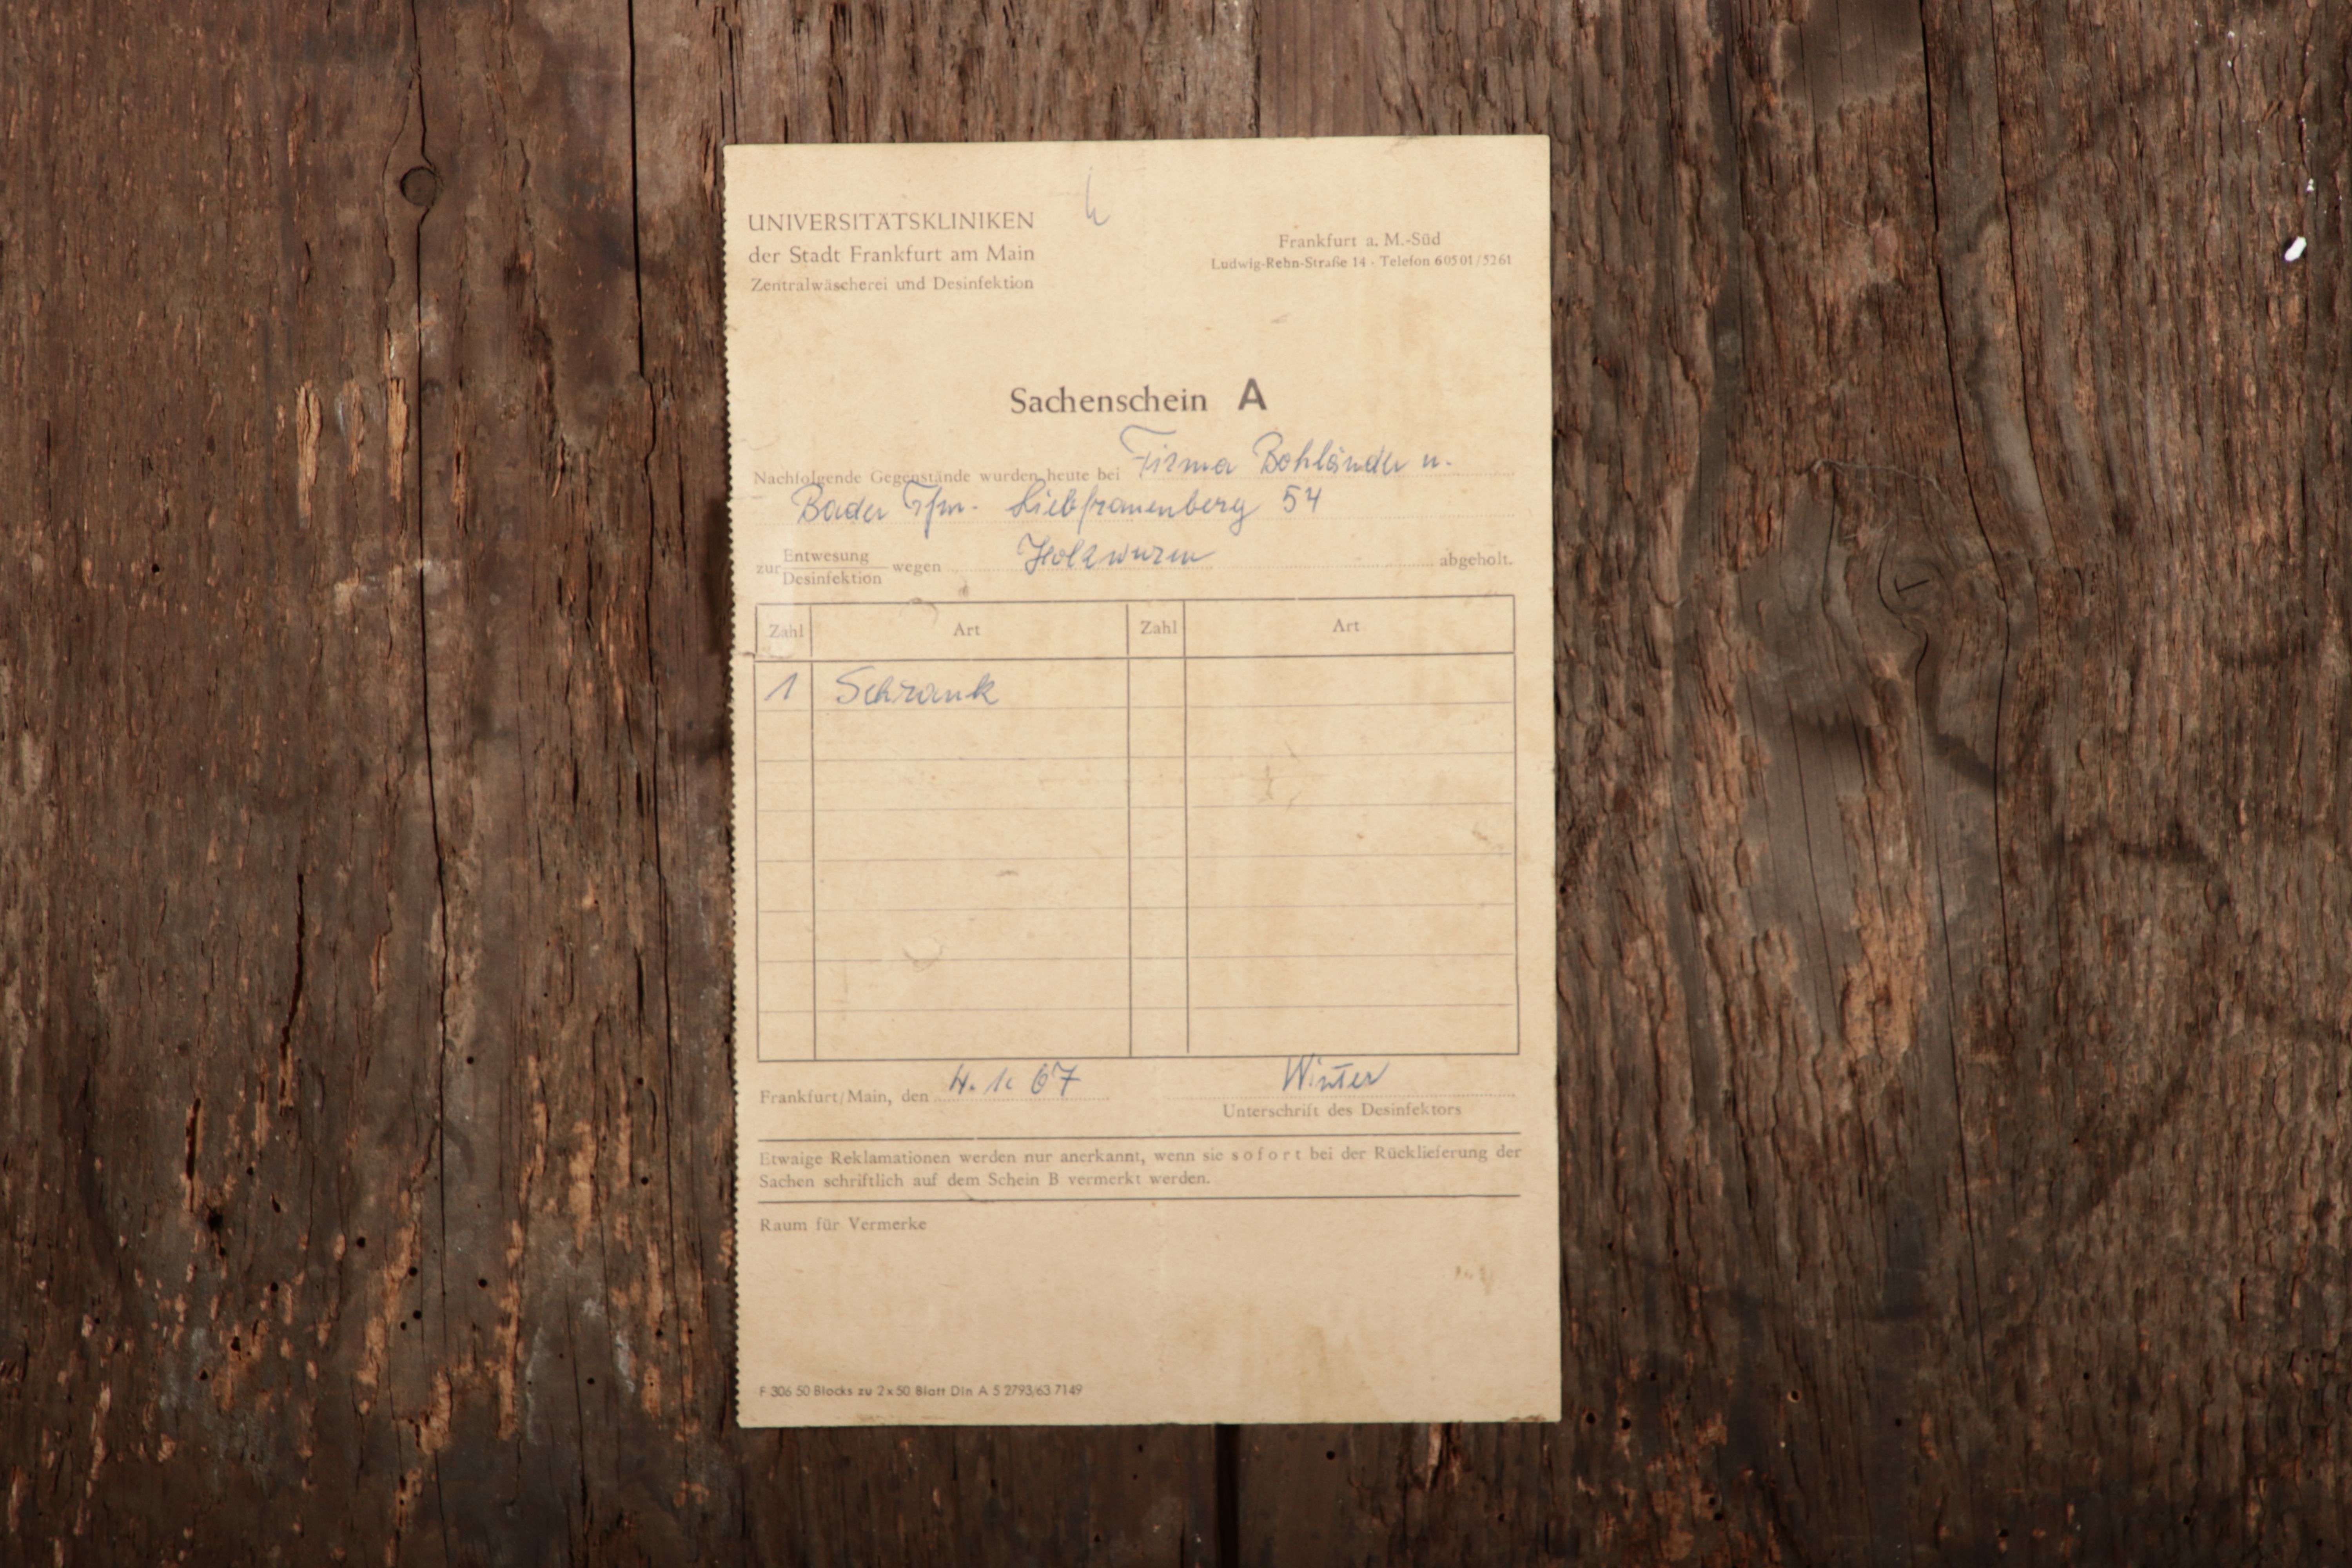 UNIVERSITÄTSKLINIKEN
der Stadt Frankfurt am Main
Zentralwäscherei und Desinfektion
Frankfurt a. M.-Süd
Ludwig-Rehn-Straße 14 · Telefon 60501/5261
Sachenschein A
Nachfolgende Gegenstände wurden heute bei Firma Bohländer u.
Bader Ffm. Liebfrauenberg 54
zur Entwesung
Desinfektion wegen Holzwurm abgeholt.
Zahl Art Zahl Art
1 Schrank
Frankfurt/Main, den 4. 1. 67 Winter
Unterschrift des Desinfektors
Etwaige Reklamationen werden nur anerkannt, wenn sie sofort bei der Rücklieferung der
Sachen schriftlich auf dem Schein B vermerkt werden.
Raum für Vermerke
F 306 50 Blocks zu 2 x 50 Blatt Din A 5 2793/63 7149